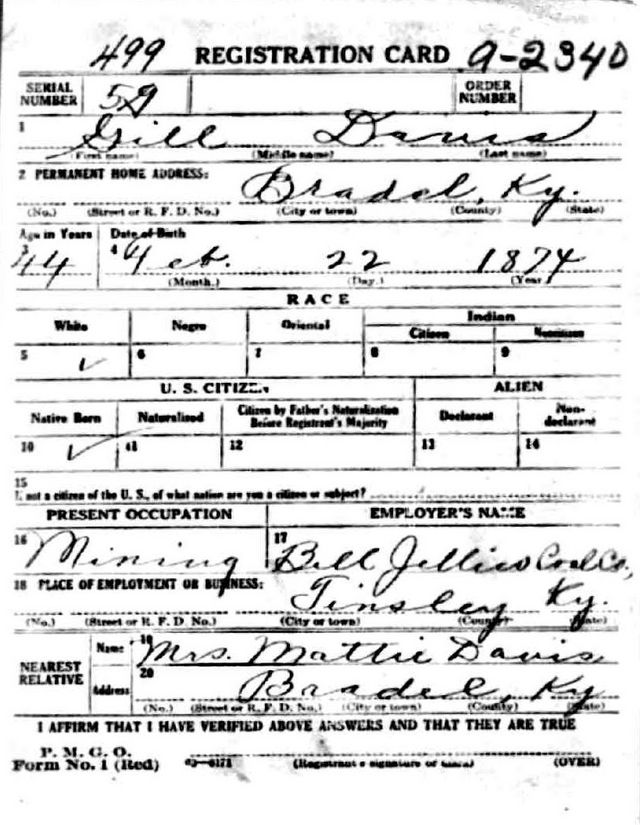 499 REGISTRATION CARD A-2340
SERIAL NUMBER 59 ORDER NUMBER
1 Gill Davis
(First name) (Middle name) (Last name)
2 PERMANENT HOME ADDRESS: Bradel, Ky.
(No.) (Street or R. F. D. No.) (City or town) (County) (State)
Age in Years Date of Birth
3 44 4 Feb. 22 1874
(Month.) (Day.) (Year.)
RACE
White Negro Oriental Indian
Citizen Noncitizen
5 ✓ 6 7 8 9
U. S. CITIZEN ALIEN
Native Born Naturalized Citizen by Father's Naturalization Before Registrant's Majority Declarant Non-declarant
10 ✓ 11 12 13 14
15
If not a citizen of the U. S., of what nation are you a citizen or subject?
PRESENT OCCUPATION EMPLOYER'S NAME
16 Mining 17 Bell Jellico Coal Co,
18 PLACE OF EMPLOYMENT OR BUSINESS: Tinsley Ky.
(No.) (Street or R. F. D. No.) (City or town) (County) (State)
NEAREST RELATIVE Name 19 Mrs. Mattie Davis
Address 20 Bradel, Ky
(No.) (Street or R. F. D. No.) (City or town) (County) (State)
I AFFIRM THAT I HAVE VERIFIED ABOVE ANSWERS AND THAT THEY ARE TRUE
P. M. G. O.
Form No. 1 (Red) 03-6171 (Registrant's signature or mark) (OVER)